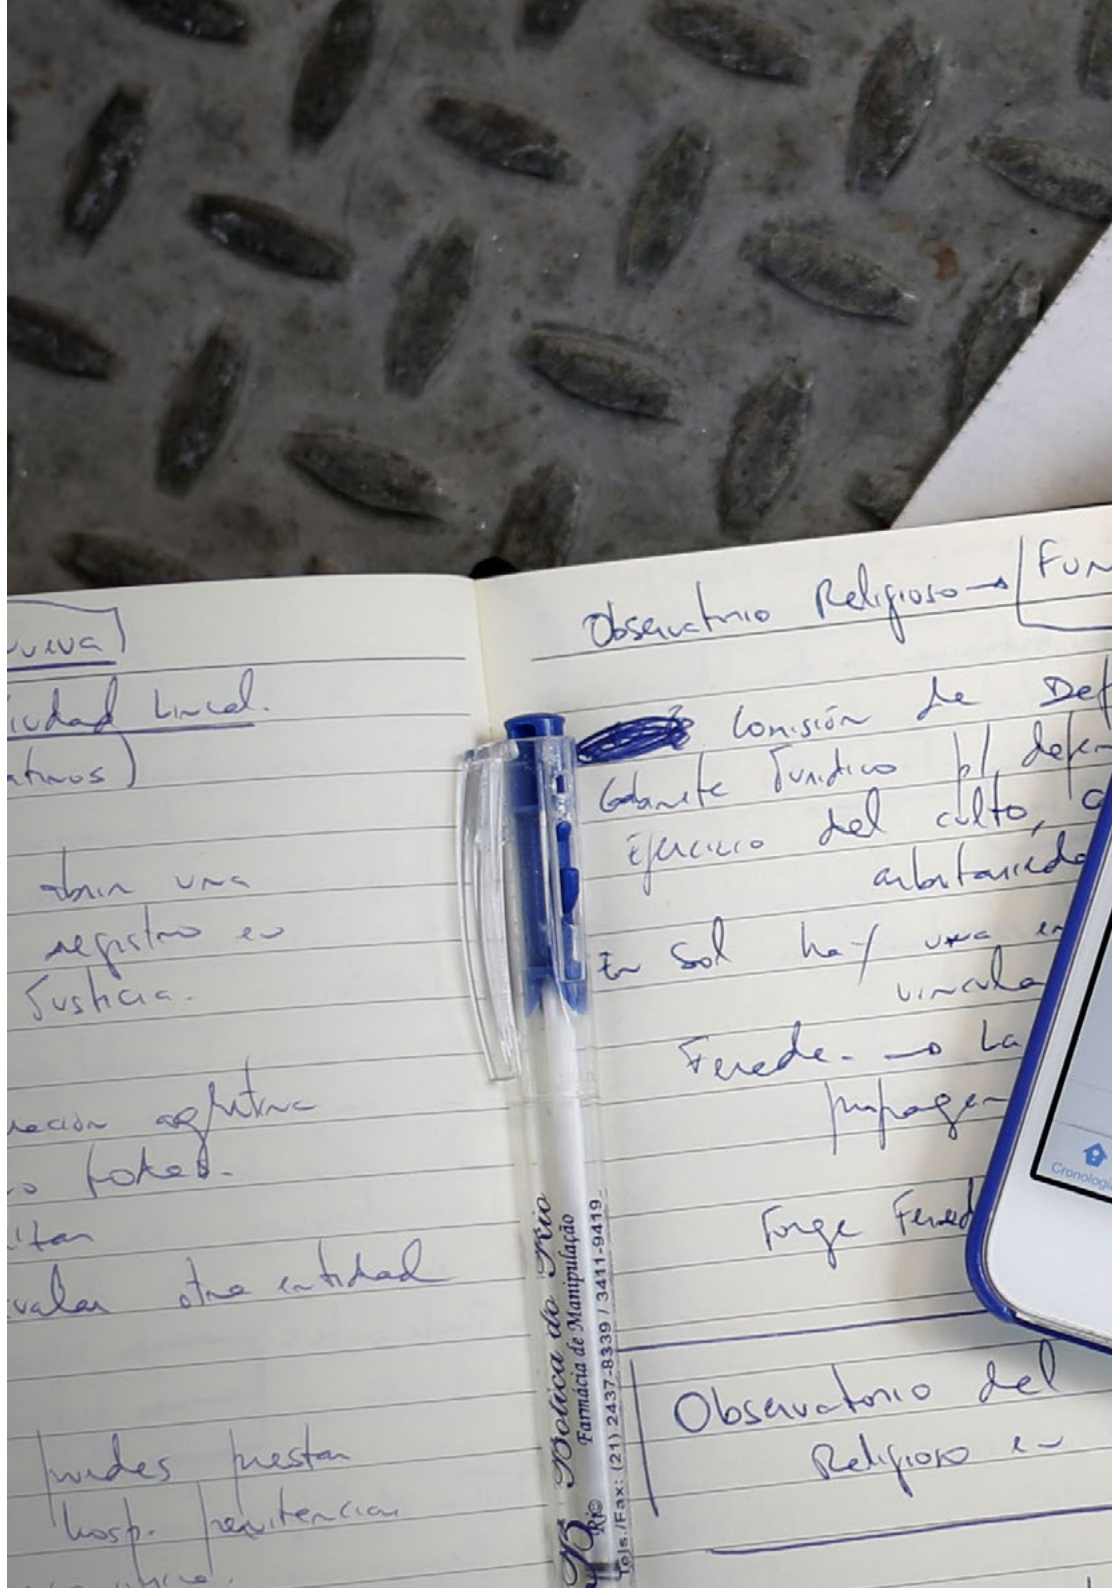 Ciudad Lineal.
abrir una
registro en
Justicia.
aglutina
todas.
otra entidad
puedes prestar
hosp. penitencia
Observatorio Religioso → FUN
Comisión de Def
Gabinete Jurídico p/ defen
ejercicio del culto,
arbitrarieda
En Sol hay una en
vincula
Ferede. → La
propagan
Jorge Fered
Observatorio del
Religioso en
Cronologí
Botica do Rio
Farmácia de Manipulação
Tels./Fax: (21) 2437-8339 / 3411-9419
Rio